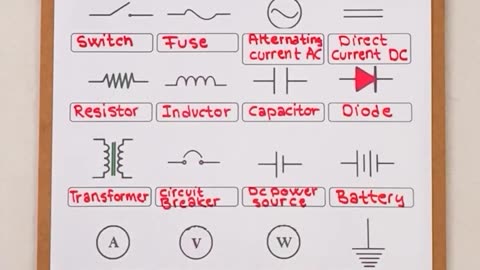 Switch Fuse Alternating current AC Direct Current DC
Resistor Inductor Capacitor Diode
Transformer Circuit Breaker DC power source Battery
A V W